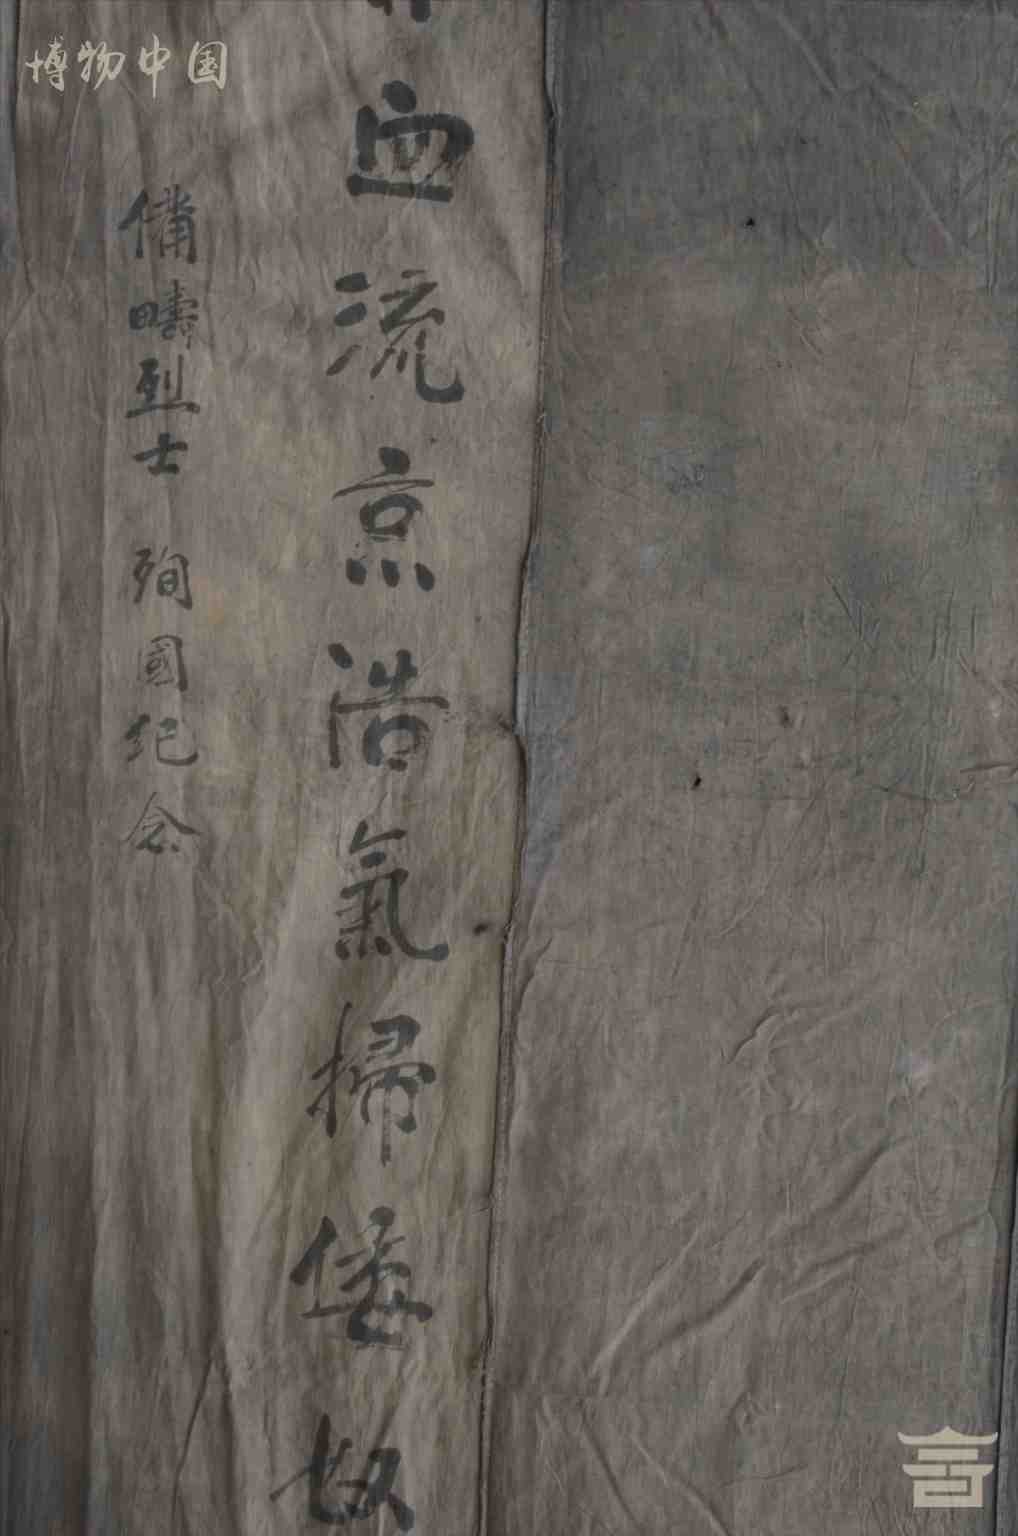 博物中国
血流京浩氣掃倭奴
備疇烈士殉國紀念